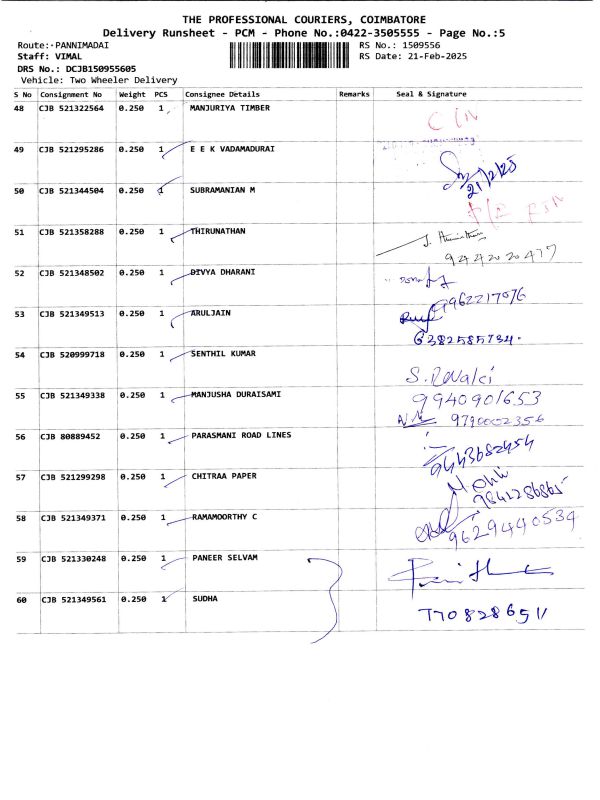 THE PROFESSIONAL COURIERS, COIMBATORE
Delivery Runsheet - PCM - Phone No.:0422-3505555 - Page No.:5
Route: PANNIMADAI RS No.: 1509556
Staff: VIMAL RS Date: 21-Feb-2025
DRS No.: DCJB150955605
Vehicle: Two Wheeler Delivery
S No Consignment No Weight PCS Consignee Details Remarks Seal & Signature
48 CJB 521322564 0.250 1 MANJURIYA TIMBER
49 CJB 521295286 0.250 1 E E K VADAMADURAI
21/2/25
50 CJB 521344504 0.250 1 SUBRAMANIAN M
51 CJB 521358288 0.250 1 THIRUNATHAN
9442020477
52 CJB 521348502 0.250 1 DIVYA DHARANI
9962217076
53 CJB 521349513 0.250 1 ARULJAIN
6382585734
54 CJB 520999718 0.250 1 SENTHIL KUMAR
S. Revalci
55 CJB 521349338 0.250 1 MANJUSHA DURAISAMI
9940901653
9790002356
56 CJB 80889452 0.250 1 PARASMANI ROAD LINES
9443682454
57 CJB 521299298 0.250 1 CHITRAA PAPER
9841286865
58 CJB 521349371 0.250 1 RAMAMOORTHY C
9629440534
59 CJB 521330248 0.250 1 PANEER SELVAM
60 CJB 521349561 0.250 1 SUDHA
7708286511